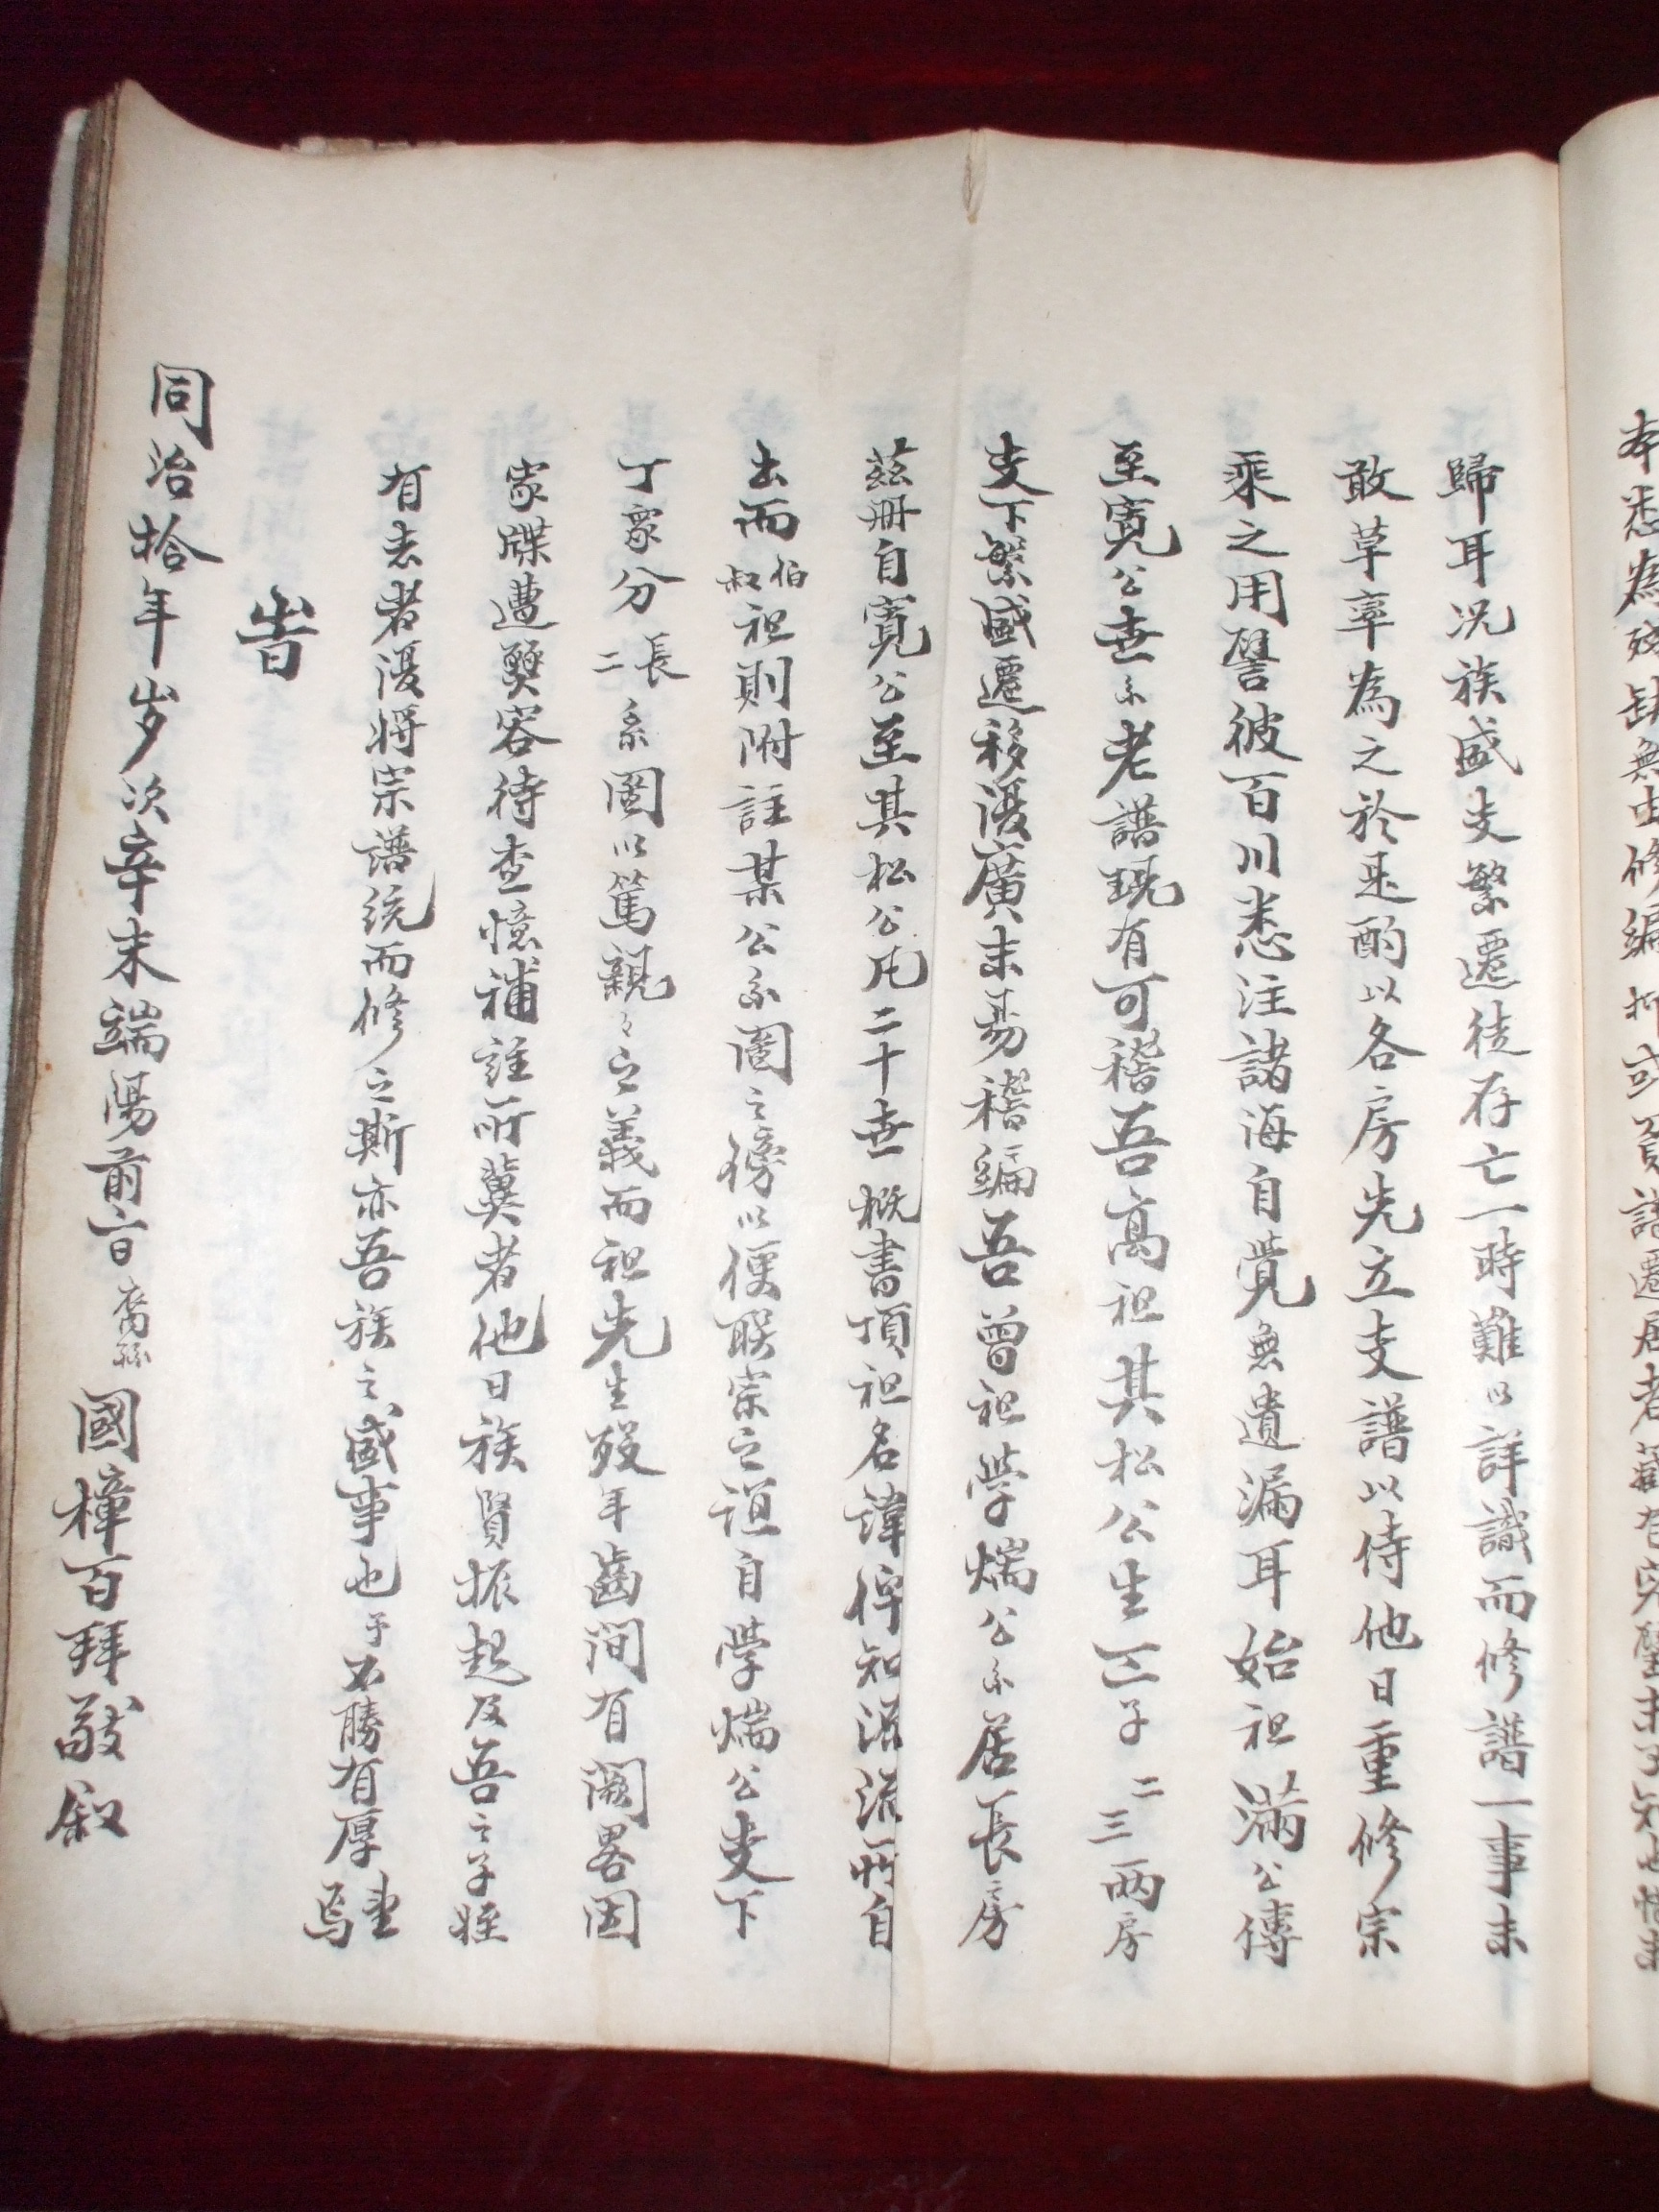 本悉為殘缺無由修編抑或
歸耳况族盛支繁遷徙存亡一時難以詳識而修譜一事未
敢草率為之於是酌以各房先立支譜以待他日重修宗
乘之用譬彼百川悉注諸海自覺無遺漏耳始祖滿公傳
至寬公世系老譜現有可稽吾高祖其松公生三子二三兩房
支下繁盛遷移浸廣未易稽編吾曾祖學煓公系居長房
茲冊自寬公至其松公凡二十世概書頂祖名諱俾知源流所自
出而伯叔祖則附註某公系圖之傍以便聯宗之誼自學煓公支下
丁衆分長二系圖以篤親々之義而祖先生歿年齒間有闕畧因
家牒遭燹容待查憶補註所冀者他日族賢振起及吾之子姪
有志者復將宗譜統而修之斯亦吾族之盛事也予不勝有厚望焉
旹
同治拾年岁次辛未端陽前六日裔孫國樟百拜敬叙